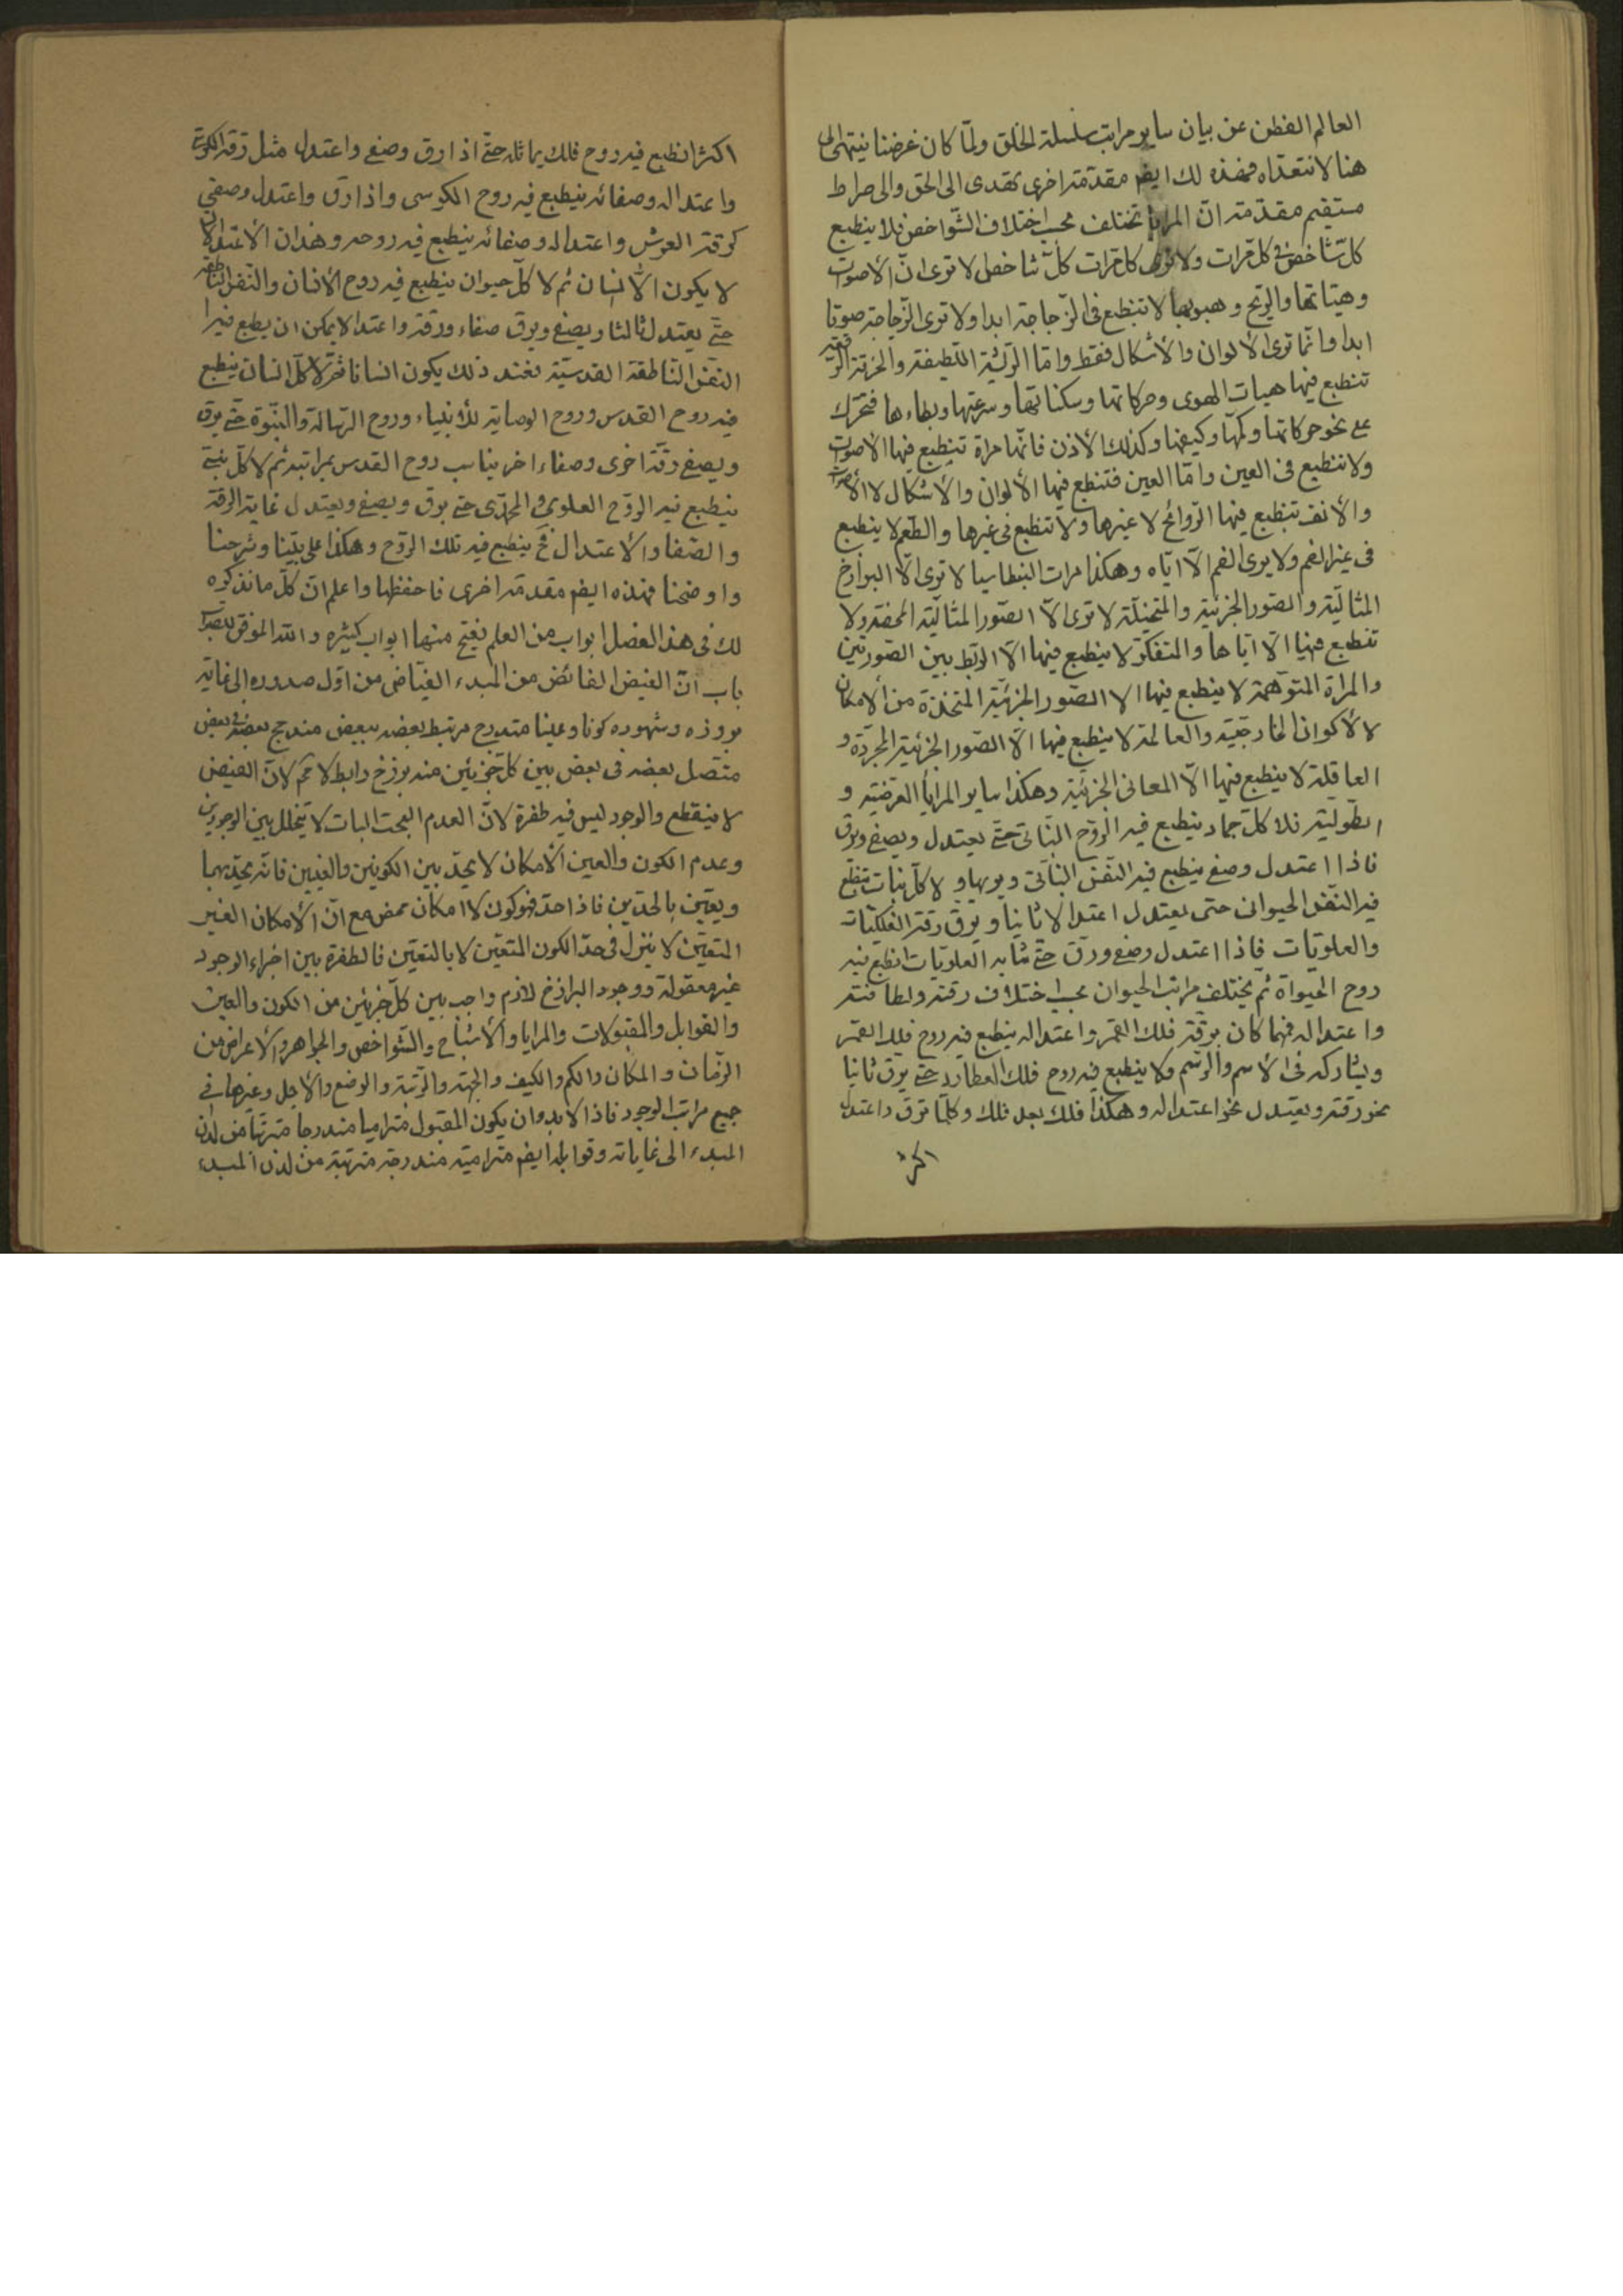 العالم الفطن عن بيان ساير مراتب سلسلة الخلق ولمّا كان غرضنا ينتهى الى
هنا لا نتعدّاه فهذه لك ايضا مقدّمة اخرى تهدى الى الحق والى صراط
مستقيم مقدّمة انّ المرايا تختلف بحسب اختلاف الشّواخص فلا ينطبع
كلّ شاخص فى كلّ مرات ولا ترى كل مرات كلّ شاخص الا ترى انّ الأصوات
وهيئاتها والرّيح وهبوبها لا تنطبع فى الزّجاجة ابدا ولا ترى الزّجاجة صوتا
ابدا وانّما ترى الألوان والأشكال فقط وامّا اللطيفة والخرقة الرّقيقة
تنطبع فيها هيات الهوى وحركاتها وسكناتها وسرعتها وبطاءها فتحرّك
على نحو حركاتها وكمّها وكيفها وكذلك الأذن فانّها مراة تنطبع فيها الأصوات
ولا تنطبع فى العين وامّا العين فتنطبع فيها الألوان والأشكال لا الأصوات
والأنف تنطبع فيها الرّوائح لا غيرها ولا تنطبع فى غيرها والطّعم لا ينطبع
فى غير الفم ولا يرى الفم الّا ايّاه وهكذا مرات البنطاسيا لا ترى الّا البرازخ
المثاليّة والصّور الجزئيّة والمتخيّلة لا ترى الّا الصّور المثاليّة المحضة ولا
تنطبع فيها الّا ايّاها والمتفكّرة لا ينطبع فيها الّا الرّبط بين الصّورتين
والمراة المتوهّمة لا ينطبع فيها الا الصّور الجزئيّة المتّخذة من الأمكان
لا الأكوان الخارجيّة والعالمة لا ينطبع فيها الّا الصّور الجزئيّة المجرّدة و
العاقلة لا ينطبع فيها الّا المعانى الجزئيّة وهكذا ساير المرايا العرضيّة و
الطّوليّة فلا كلّ جماد ينطبع فيه الرّوح النّباتى حتّى يعتدل ويصفى ويرق
فاذا اعتدل وصفى ينطبع فيه النّفس النّباتى ويربها ولا كلّ نبات ينطبع
فيه النّفس الحيوانى حتى يعتدل اعتدالا ثانيا ويرق رقة الفلكيّات
والعلويّات فاذا اعتدل وصفى ورق حتّى شابه العلويّات انطبع فيه
روح الحيواة ثم يختلف مراتب الحيوان بحسب اختلاف رقته ولطافته
واعتداله فمهما كان برقّة فلك القمر واعتداله ينطبع فيه روح فلك القمر
ويشاركه فى الأسم والرّسم ولا ينطبع فيه روح فلك العطارد حتّى يرق ثانيا
نحو رقته ويعتدل نحو اعتداله وهكذا فلك بعد فلك وكلّما ترق واعتدل
اكثر
اكثر انطبع فيه روح فلك يماثله حتّى اذا رق وصفى واعتدل مثل رقّة الكرسى
واعتداله وصفائه ينطبع فيه روح الكرسى واذا رق واعتدل وصفى
كرقّة العرش واعتداله وصفائه ينطبع فيه روحه وهذان الأعتدالان
لا يكون الّا لانسان ثم لا كلّ حيوان ينطبع فيه روح الأنسان والنّفس النّاطقة
حتّى يعتدل ثالثا ويصفى ويرق صفاء ورقّة واعتدالا يمكن ان يطبع فيه
النّفس النّاطقة القدسيّة فعند ذلك يكون انسانا ثمّ لا كلّ انسان ينطبع
فيه روح القدس وروح الوصاية للأنبياء وروح الرّسالة والنّبوّة حتّى يرق
ويصفى رقّة اخرى وصفاء اخر يناسب روح القدس بمراتبه ثم لا كلّ نبىّ
ينطبع فيه الرّوح العلوى والمحمّدى حتى يرق ويصفى ويعتدل غاية الرقة
والصّفا والأعتدال فح ينطبع فيه تلك الرّوح وهكذا على بيّنا وشرحنا
واوضحنا فهذه ايضا مقدمة اخرى فاحفظها واعلم انّ كلّ ما نذكره
لك فى هذا الفصل ابواب من العلم يفتح منها ابواب كثيرة والله الموفق للصّواب
باب انّ الفيض الفائض من المبدء الفيّاض من اوّل صدوره الى غاية
بروزه وشهوده كونا وعينا متدرج مرتبط بعضه ببعض مندمج بعضه فى بعض
متّصل بعضه فى بعض بين كلّ جزئين منه برزخ رابط لا محم لانّ الفيض
لا ينقطع والوجود ليس فيه طفرة لانّ العدم البحت البات لا يتخلل بين الوجودين
وعدم الكون والعين الأمكان لا يحدّ بين الكونين والعينين فانّه يحدّ بهما
ويعيّن بالحدّين فاذا حدّ فهو كون لا امكان محض مع انّ الأمكان الغير
المتعيّن لا ينزل فى حدّ الكون المتعيّن لا بالتعيّن فالطفرة بين اجزاء الوجود
غير معقولة ووجود البرازخ لازم واجب بين كلّ جزئين من الكون والعين
والقوابل والمقبولات والمرايا والأشباح والشّواخص والجواهر والأعراض من
الزّمان والمكان والكم والكيف والجهة والرّتبة والوضع والأجل وغيرها فى
جميع مراتب الوجود فاذا لا بد وان يكون المقبول متراميا مندرجا مترتّبا من لدن
المبدء الى غاياته وقوابله ايضا مترامية مندرجة مترتبة من لدن المبدء